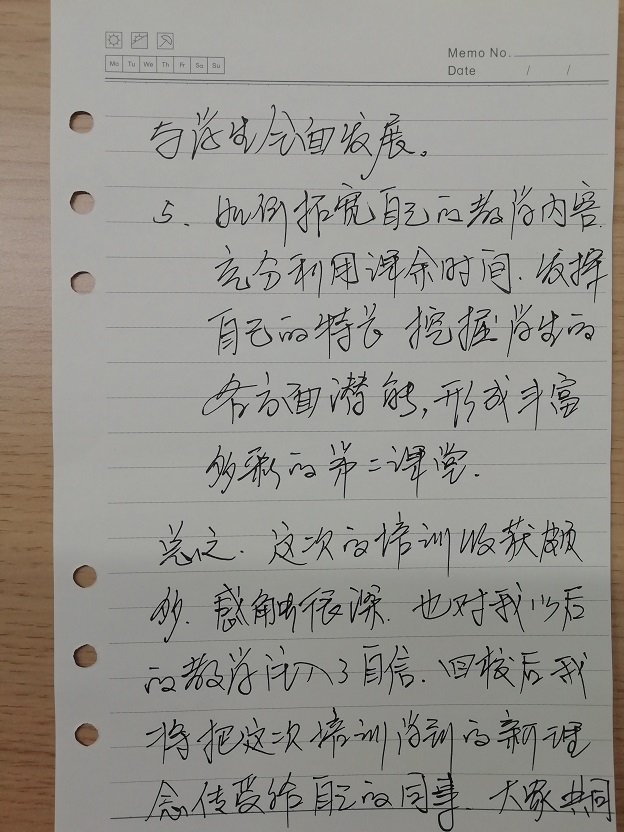 Memo No.
Mo Tu We Th Fr Sa Su
Date / /
与学生全面发展。
5. 如何拓宽自己的教学内容
充分利用课余时间.发挥
自己的特长 挖掘学生的
各方面潜能,形成丰富
多彩的第二课堂.
总之.这次的培训收获颇
多.感触很深.也对我以后
的教学注入了自信.回校后我
将把这次培训学到的新理
念传受给自己的同事.大家共同